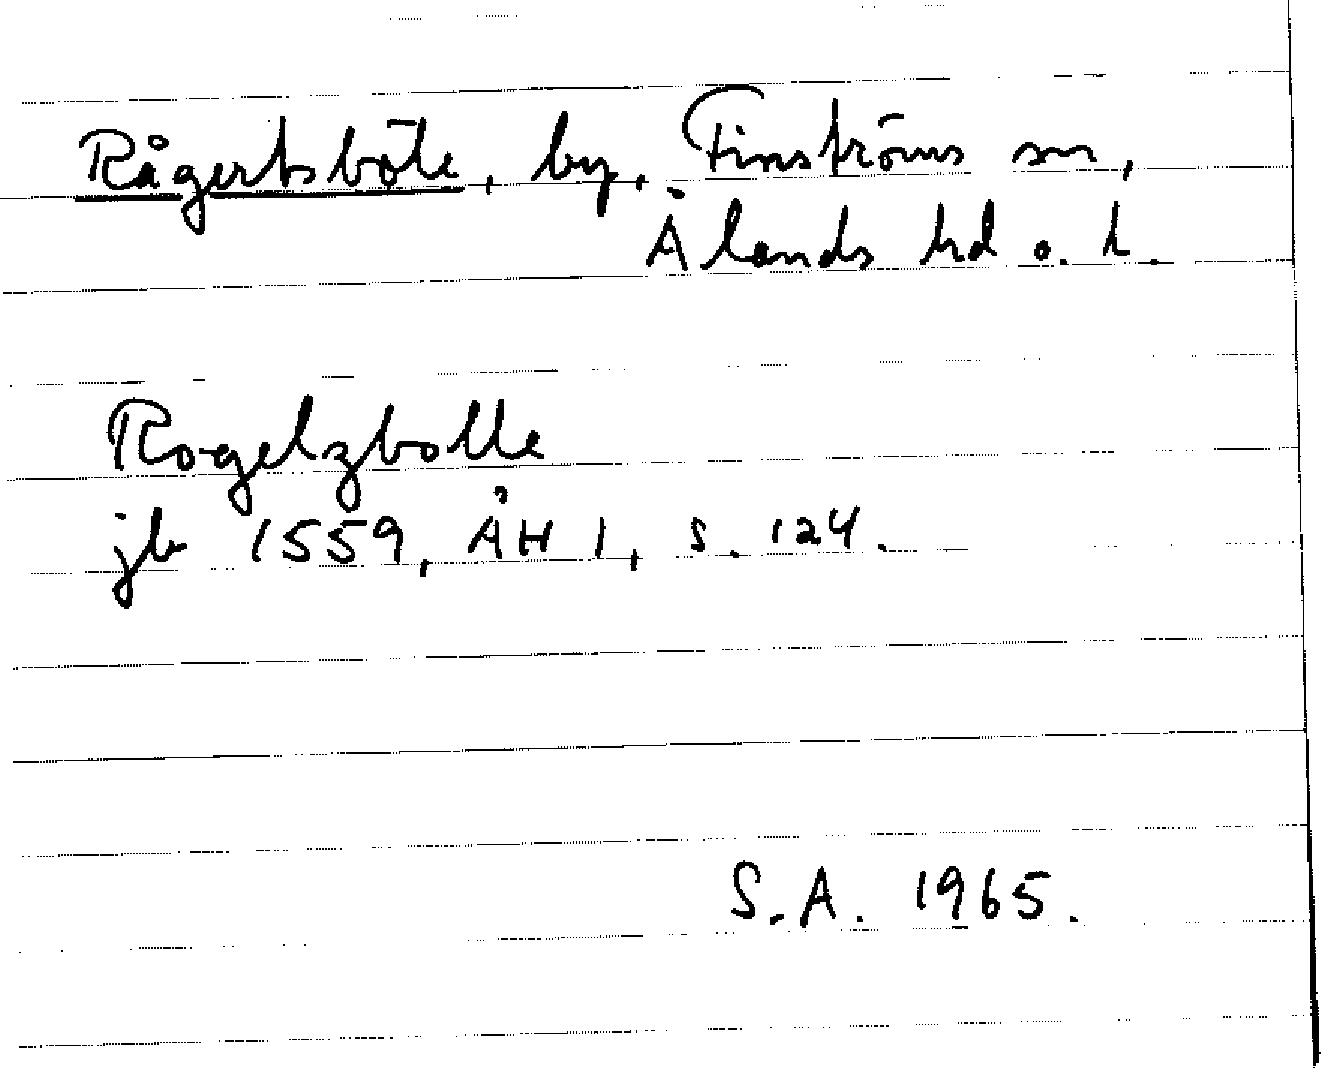 Rågertsböle, by, Finströms sn,
Ålands hd o. l.
Rogelzbolle
jb 1559, ÅH 1, s. 124.
S.A. 1965.